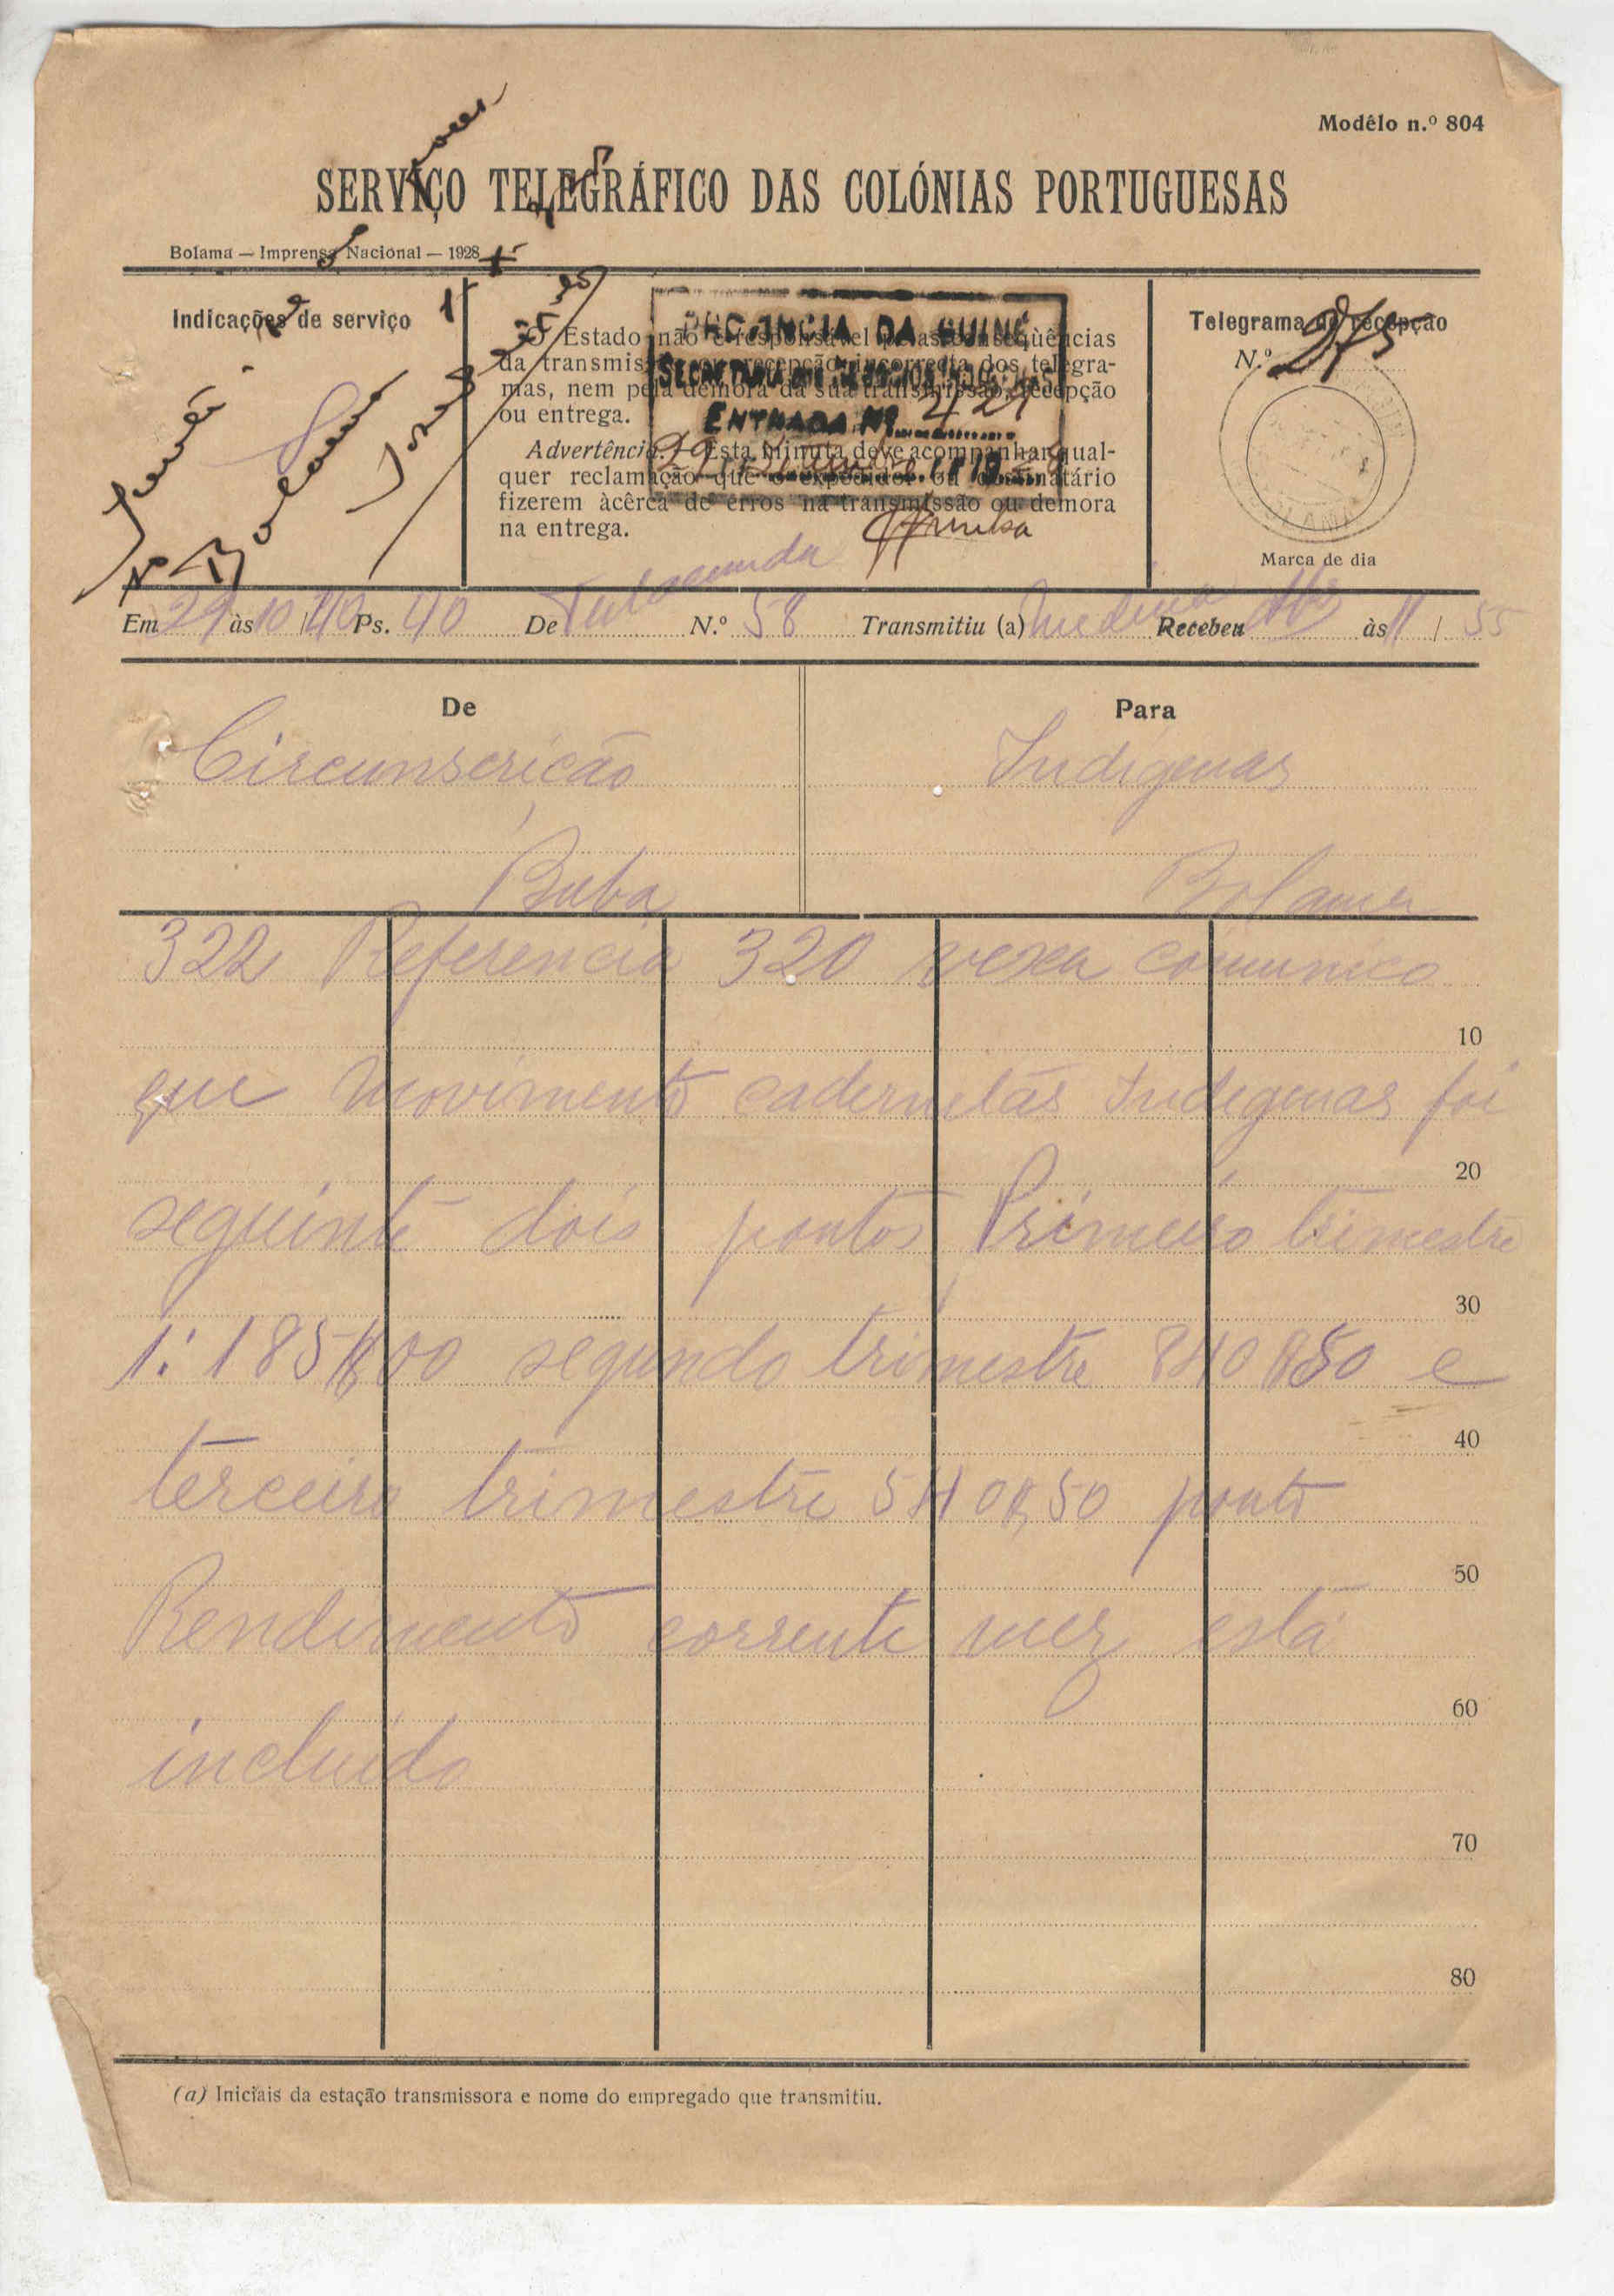 Modêlo n.º 804
SERVIÇO TELEGRÁFICO DAS COLÓNIAS PORTUGUESAS
Bolama — Imprensa Nacional — 1928
Indicações de serviço
O Estado não é responsável pelas conseqüências
da transmissão ou recepção incorrecta dos telegra-
mas, nem pela demora da sua transmissão, recepção
ou entrega.
Advertência.—Esta minuta deve acompanhar qual-
quer reclamação que o expedidor ou destinatário
fizerem àcêrca de erros na transmissão ou demora
na entrega.
PROVINCIA DA GUINÉ
ENTRADA Nº
Telegrama de recepção
N.º 275
BOLAMA
Marca de dia
Em 29 às 10/40 Ps. 40 De N.º 58 Transmitiu (a) Recebeu às 11/55
De
Para
Circunscrição
Indigenas
Buba
Bolama
322 Referencia 320 vexa comunico
10
que movimento cadernetas Indigenas foi
20
seguinte dois pontos Primeiro trimestre
30
1:185$00 segundo trimestre 840$50 e
40
terceiro trimestre 540$50 ponto
50
Rendimento corrente mez está
60
incluido
70
80
(a) Iniciais da estação transmissora e nome do empregado que transmitiu.